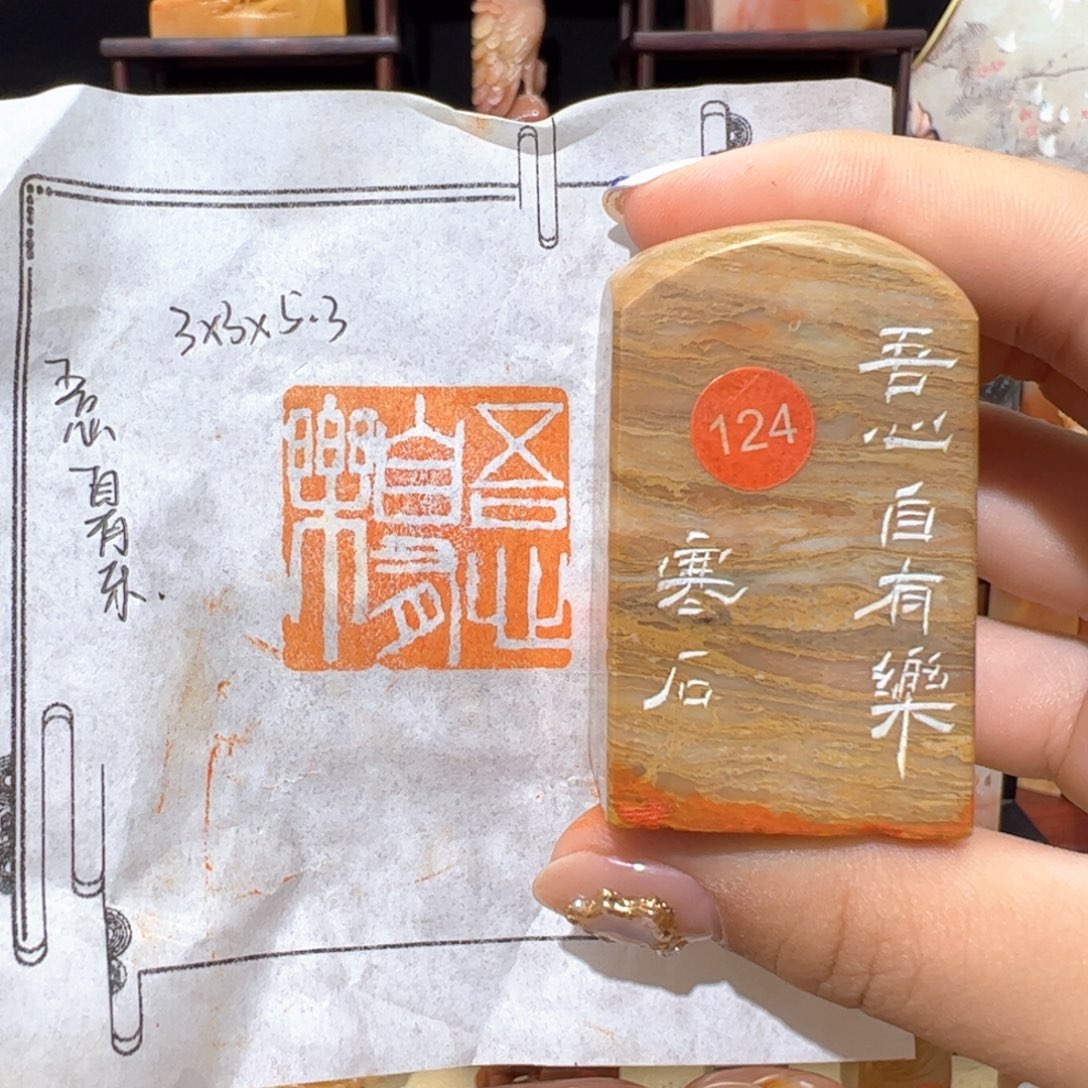 3×3×5.3
吾心自有乐.
吾心自有樂
124
吾心自有樂
寒石